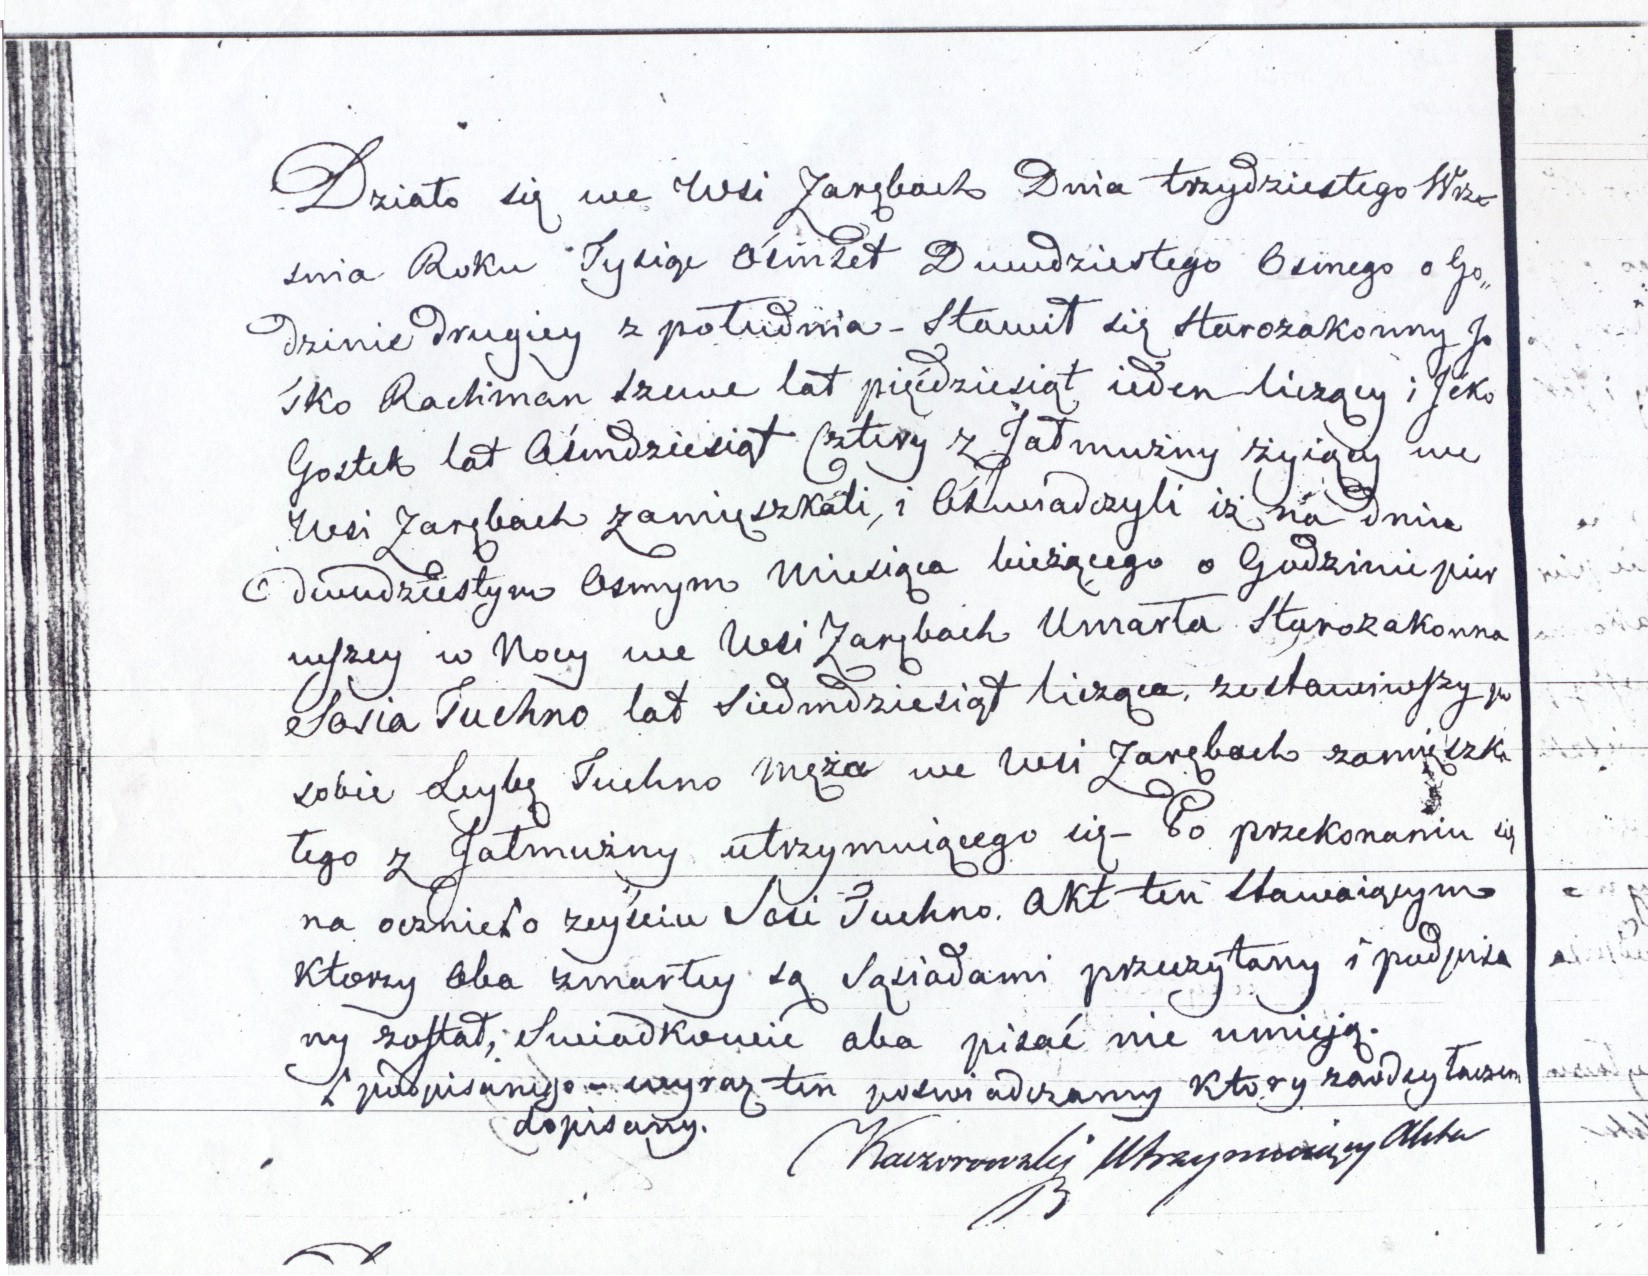 Działo się we Wsi Zarębach Dnia trzydziestego Wrze
snia Roku Tysiąc Ośmset Dwudziestego Osmego o Go„
dzinie drugiey z południa - Stawił się Starozakonny Jo
śko Rachman szewc lat pięćdziesiąt ieden liczący i Jcko
Gostek lat Ośmdziesiąt Cztery z Jałmużny żyiący we
Wsi Zarębach zamięszkali, i Oświadczyli iż na dniu
dwudziestym Osmym Miesiąca bieżącego o Godzinie pier
wszey w Nocy we Wsi Zarębach Umarła Starozakonna
Sosia Tuchno lat Siedmdziesiąt licząca, zostawiwszy po
sobie Leybę Tuchno Męża we Wsi Zarębach zamięszka
łego z Jałmużny utrzymuiącego się - Po przekonaniu się
na ocznie o zeyściu Sosi Tuchno. Akt ten Stawaiącym
ktorzy oba zmarłey są Sąsiadami przeczytany i podpisa
ny został, Swiadkowie oba pisać nie umieją.
podpisanego - wyraz ten poswiadczamy który
dopisany.
Kaczorowski Utrzymuiący Akta